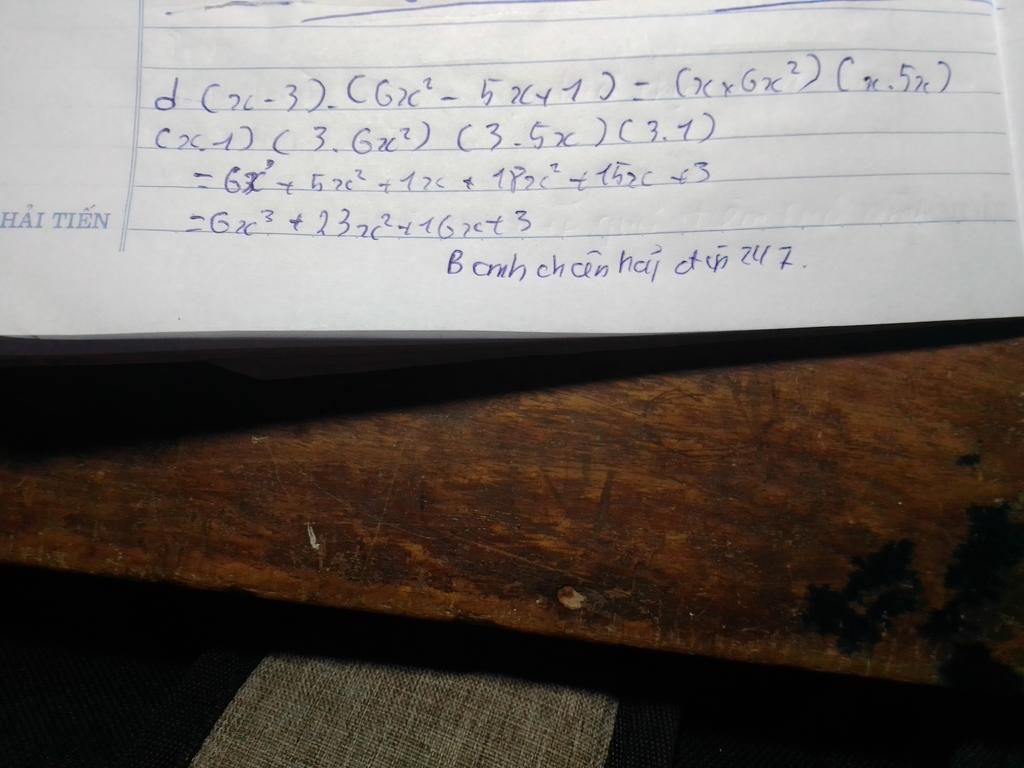 d (x-3).(6x² - 5x+1) = (x×6x²) (x.5x)
(x.1) (3.6x²) (3.5x) (3.1)
= 6x³ + 5x² + 1x + 18x² + 15x + 3
HẢI TIẾN
= 6x³ + 23x² + 16x + 3
247.